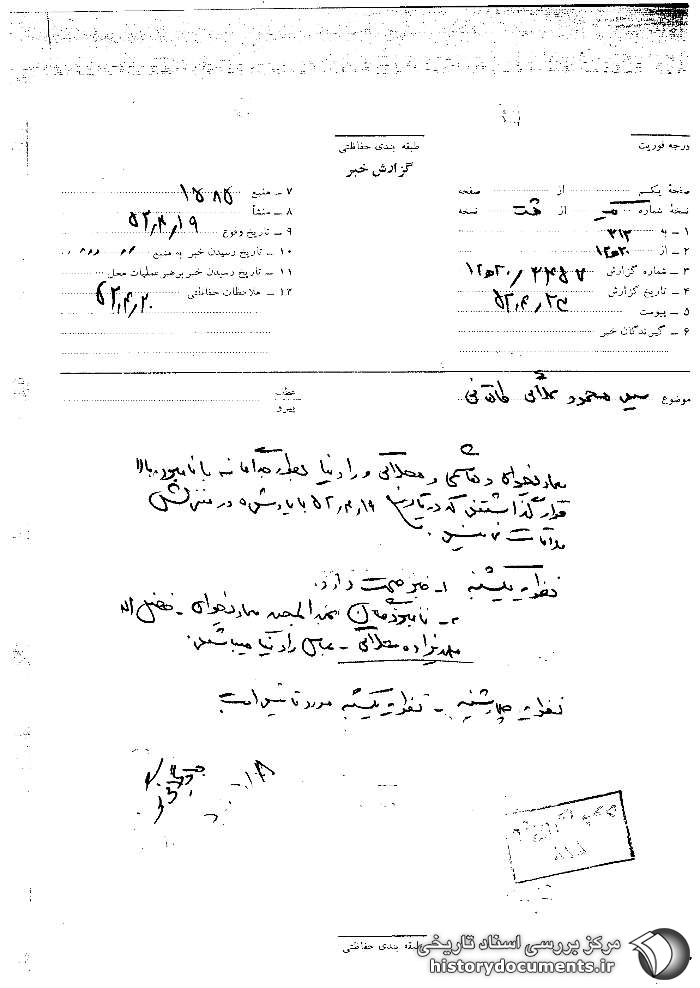 درجه فوریت
طبقه بندی حفاظتی
گزارش خبر
صفحهٔ یکم از صفحه
نسخهٔ شماره از نسخه
۱ - به ۳۱۲
۲ - از ۱۲ه۲۰
۳ - شماره گزارش ۱۲ه۲۰/
۴ - تاریخ گزارش ۵۲٫۴٫۲۴
۵ - پیوست
۶ - گیرندگان خبر
۷ - منبع
۸ - منشأ
۹ - تاریخ وقوع ۵۲٫۴٫۱۹
۱۰ - تاریخ رسیدن خبر به منبع
۱۱ - تاریخ رسیدن خبر برهبر عملیات محل
۱۲ - ملاحظات حفاظتی ۵۲٫۴٫۲۰
موضوع سید محمود علائی طالقانی
عطف
پیرو
و رادنیا بطور جداگانه با نامبرده بالا
قرار گذاشتند که در تاریخ ۵۲٫۴٫۱۹ با یادشده در منزلش
ملاقات نمایند.
نظریه یکشنبه ۱- خبر صحت دارد.
۲- نامبردگان - فضل اله
مهدیزاده محلاتی - عباس رادنیا میباشند.
نظریه چهارشنبه - نظریه یکشنبه مورد تائید است
طبقه بندی حفاظتی
مرکز بررسی اسناد تاریخی
historydocuments.ir